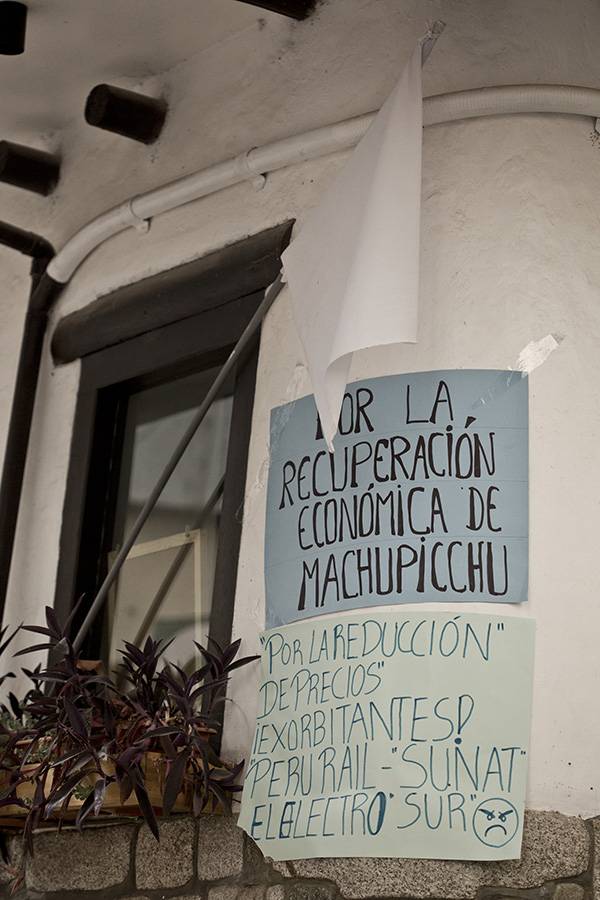 POR LA
RECUPERACIÓN
ECONÓMICA DE
MACHUPICCHU
"POR LA REDUCCIÓN"
DE PRECIOS"
¡EXORBITANTES!
"PERU RAIL - "SUNAT"
ELELECTRO" SUR"